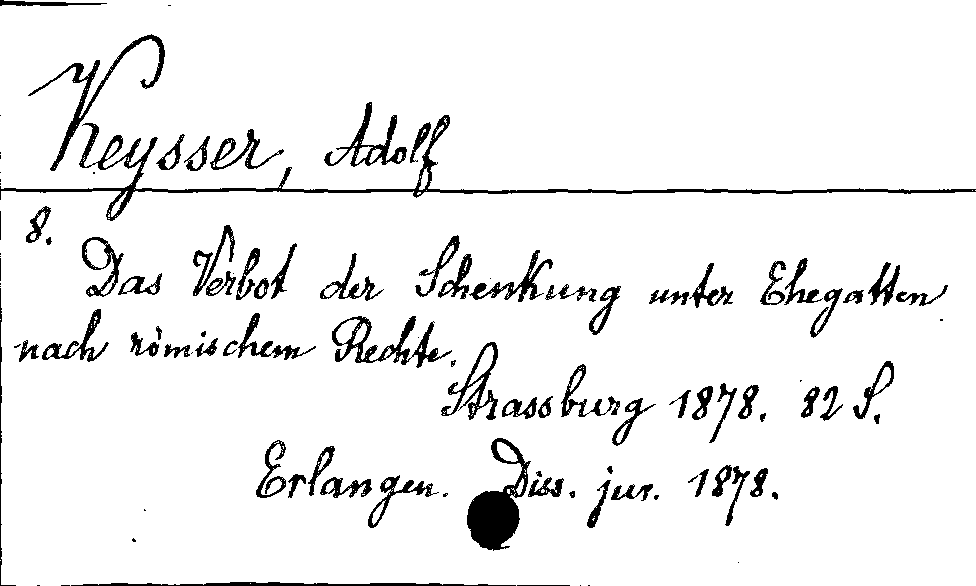 Keysser, Adolf
8.
Das Verbot der Schenkung unter Ehegatten
nach römischem Rechte.
Strassburg 1878. 82 S.
Erlangen. Diss. jur. 1878.